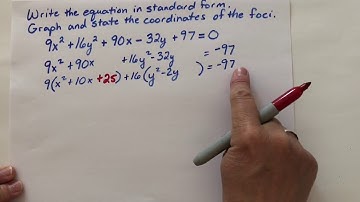 Write the equation in standard form.
Graph and state the coordinates of the foci.
9x² + 16y² + 90x - 32y + 97 = 0
9x² + 90x + 16y² - 32y = -97
9(x² + 10x + 25) + 16(y² - 2y ) = -97